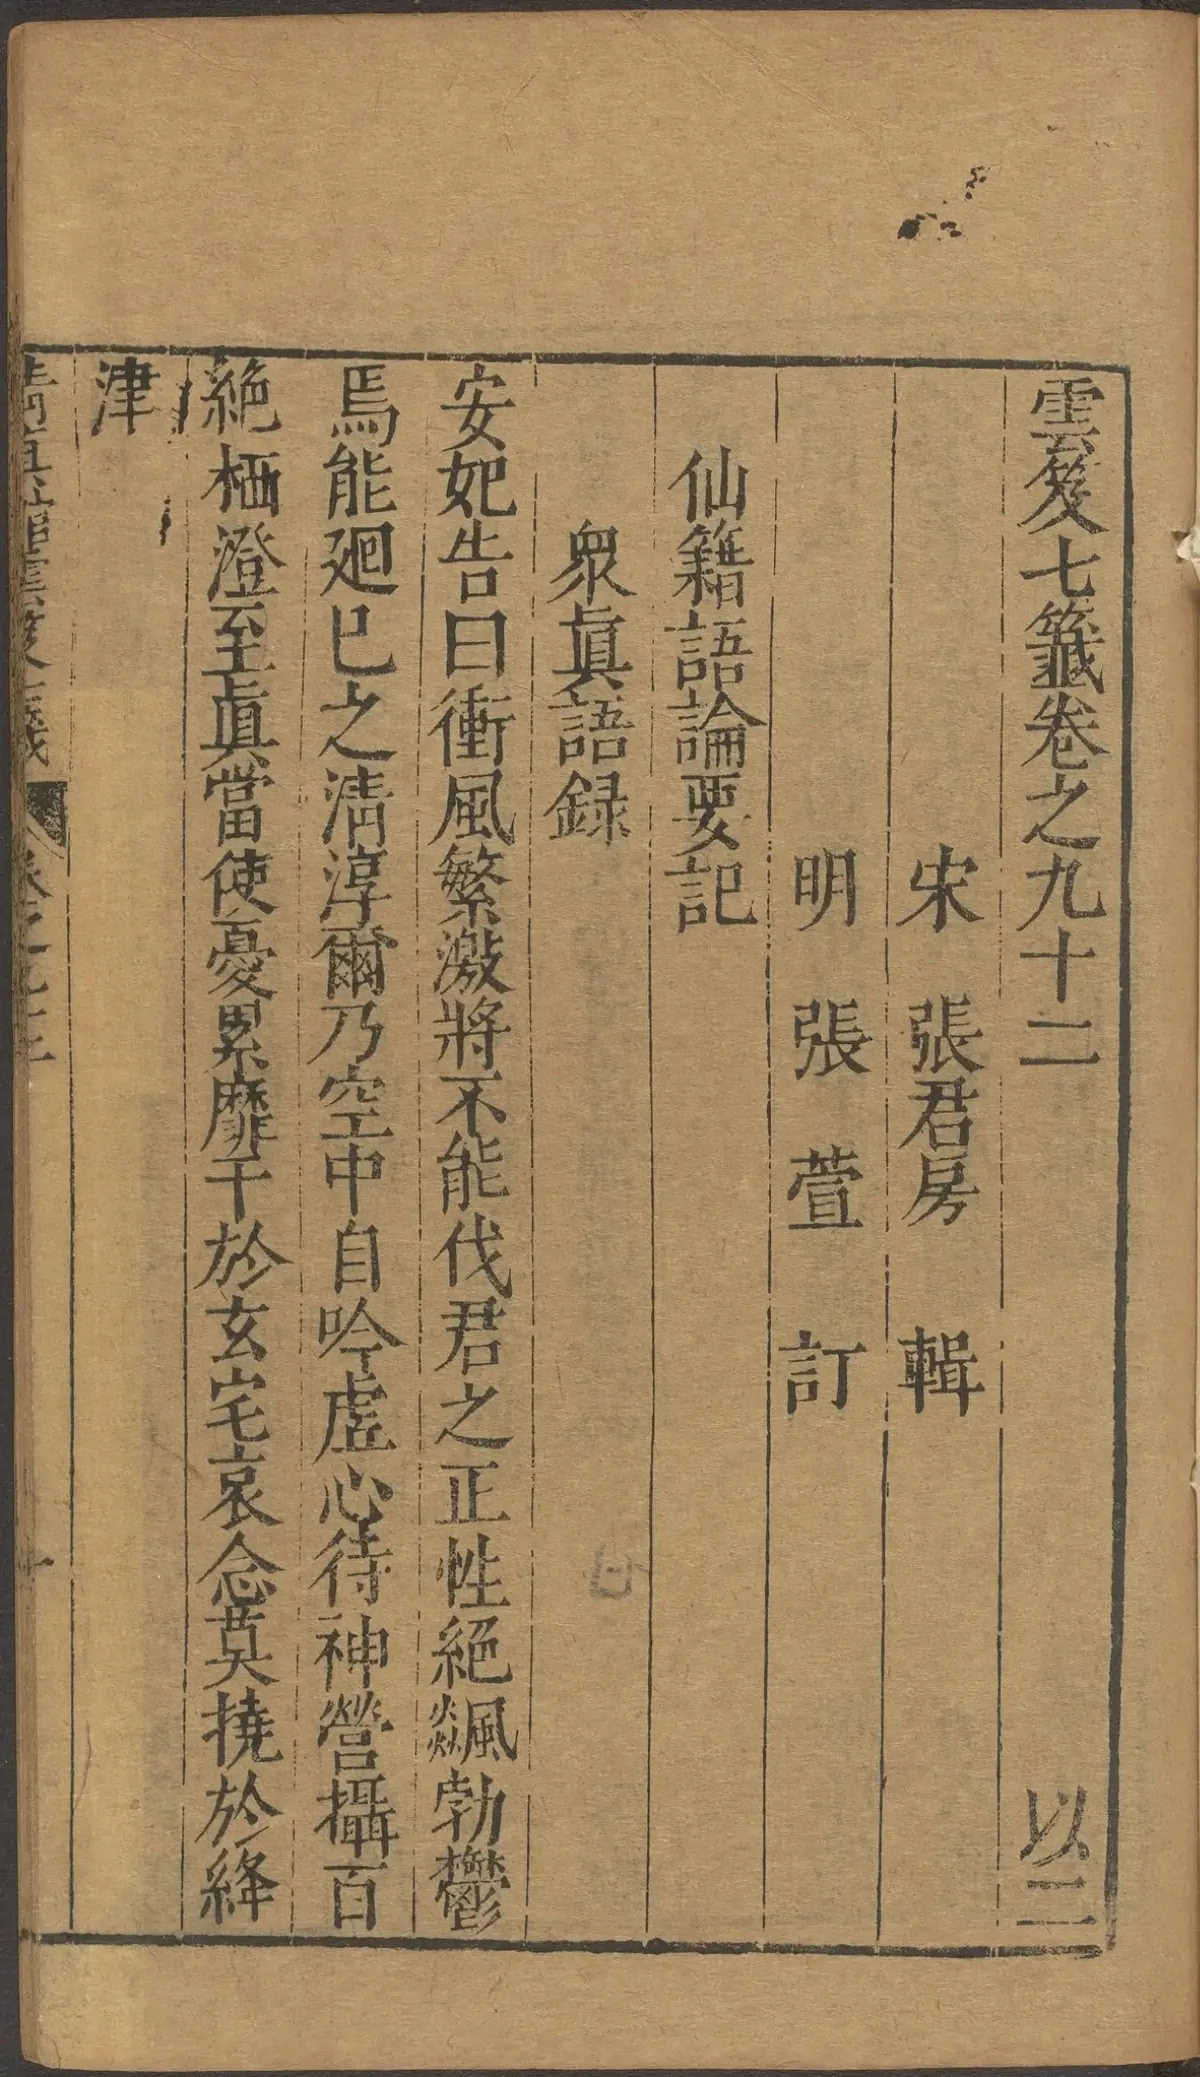 雲笈七籤卷之九十二 以二
宋 張君房 輯
明 張萱 訂
仙籍語論要記
衆眞語録
安妃告曰衝風繁激將不能伐君之正性絕飈勃鬱
焉能廻已之淸淳爾乃空中自吟虛心待神營攝百
絶栖澄至眞當使憂累靡干於玄宅哀念莫撓於絳
津